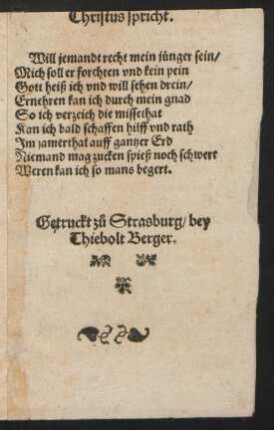 Christus spricht.
Will jemandt recht mein jünger sein/
Mich soll er forchten vnd kein pein
Gott heiß ich vnd will sehen drein/
Ernehren kan ich durch mein gnad
So ich verzeich die missethat
Kan ich bald schaffen hilff vnd rath
Im jamerthal auff gantzer Erd
Niemand mag zucken spieß noch schwert
Weren kan ich so mans begert.
Getruckt zů Strasburg/ bey
Thiebolt Berger.